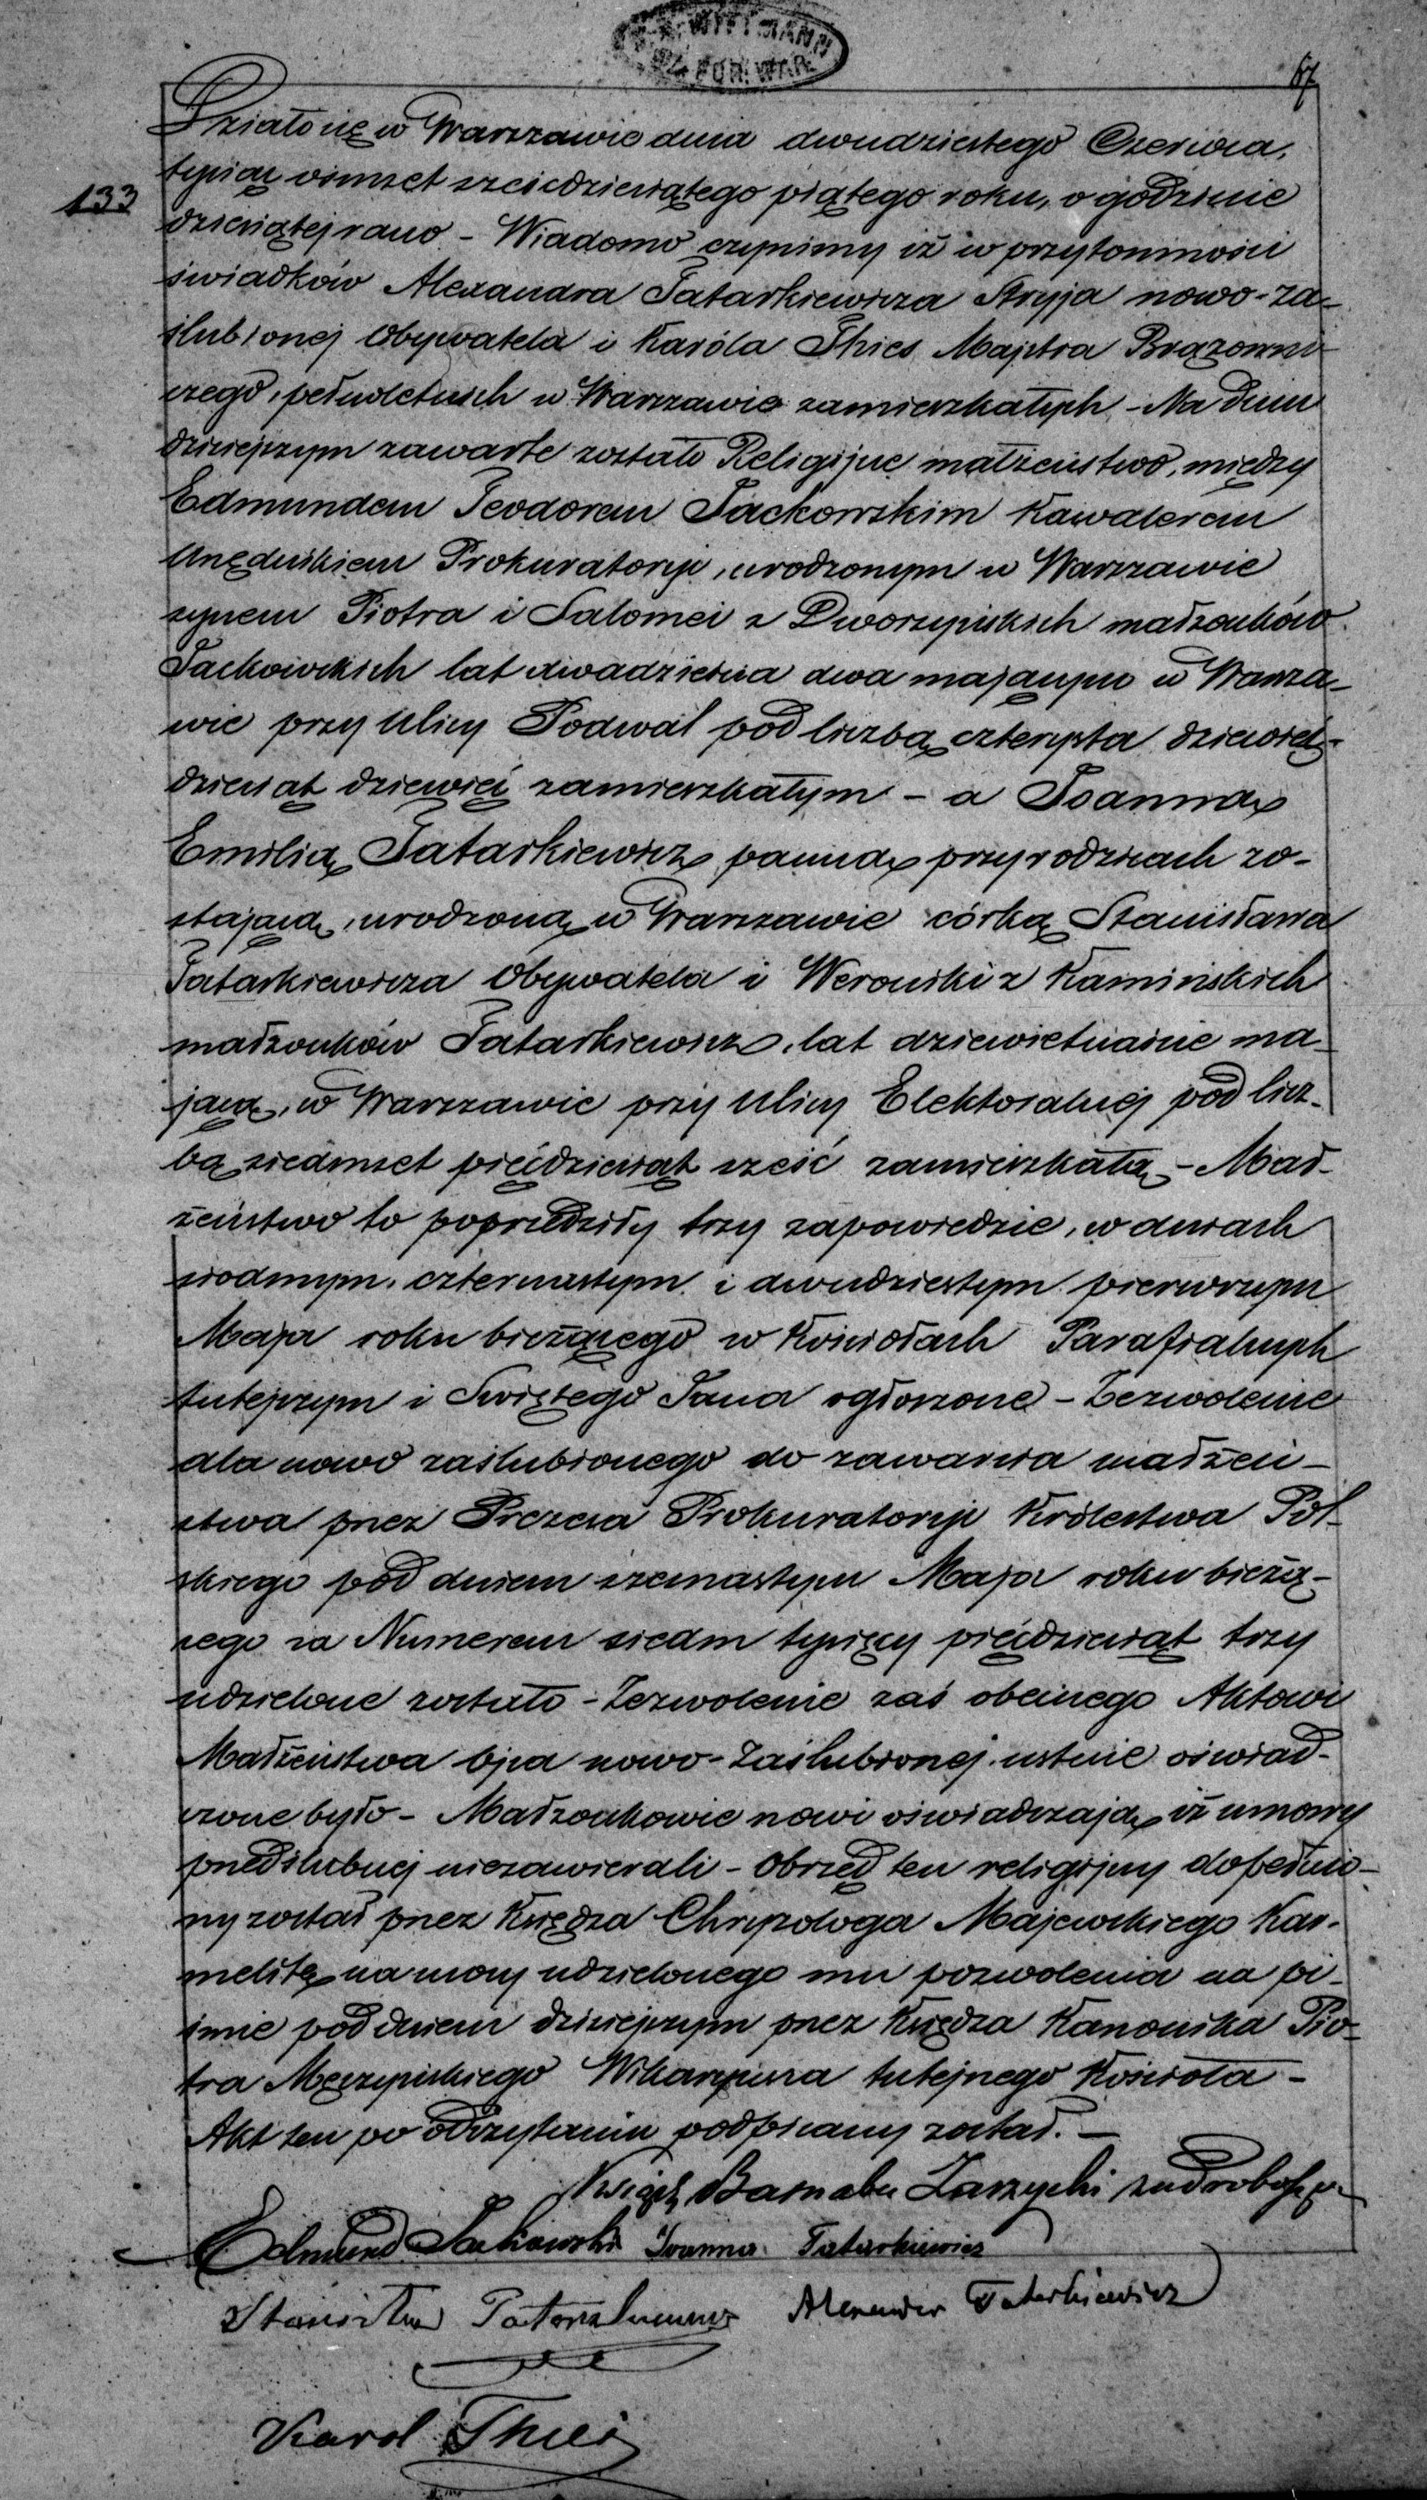 WITTMANN
67
133
Działo się w Warszawie dnia dwudziestego Czerwca,
tysiąc ośmset sześćdziesiątego piątego roku, o godzinie
dziewiątej rano. – Wiadomo czynimy iż w przytomności
świadków Alexandra Tatarkiewicza Stryja nowo-za-
ślubionej Obywatela i Karóla Thies Majstra Brązowni-
czego, pełnoletnich w Warszawie zamieszkałych, – Na dniu
dzisiejszym zawarte zostało Religijne małżeństwo, między
Edmundem Teodorem Jackowskim Kawalerem
Urzędnikiem Prokuratoryi, urodzonym w Warszawie
synem Piotra i Salomei z Dworzyńskich małżonków
Jackowskich lat dwadzieścia dwa mającym w Warsza-
wie przy Ulicy Podwal pod liczbą czterysta dziewięć-
dziesiąt dziewięć zamieszkałym – a Joanną
Emilią Tatarkiewicz, panną przy rodzicach zo-
stającą, urodzoną w Warszawie córką Stanisława
Tatarkiewicza Obywatela i Weroniki z Kamińskich
małżonków Tatarkiewicz, lat dziewietnaście ma-
jącą, w Warszawie przy Ulicy Elektoralnej pod licz-
bą siedmset pięćdziesiąt sześć zamieszkałą – Mał-
żeństwo to poprzedziły trzy zapowiedzie, w dniach
siodmym, czternastym i dwudziestym pierwszym
Maja roku bieżącego w Kościołach Parafialnych
tutejszym i Swiętego Jana ogłoszone – Zezwolenie
dla nowo zaślubionego do zawarcia małżeń-
stwa przez Prezesa Prokuratoryi Królestwa Pol-
skiego pod dniem szesnastym Maja roku bieżą-
cego za Numerem siedm tysięcy pięćdziesiąt trzy
udzielone zostało – Zezwolenie zaś obecnego Aktowi
Małżeństwa Ojca nowo-Zaślubionej ustnie oświad-
czone było – Małżonkowie nowi oświadczają, iż umowy
przedślubnej niezawierali – Obrzęd ten religijny dopełnio-
ny został przez Księdza Chryzologa Majewskiego Kar-
melitę na mocy udzielonego mu pozwolenia na pi-
śmie pod dniem dzisiejszym przez Księdza Kanonika Pio-
tra Męczyńskiego Wikaryusza tutejszego Kościoła –
Akt ten po odczytaniu podpisany został. –
Ksiądz Barnaba Zarzycki
Edmund Jackowski Joanna Tatarkiewicz
Stanisław Tatarkiewicz Alexander Tatarkiewicz
Karol Thies